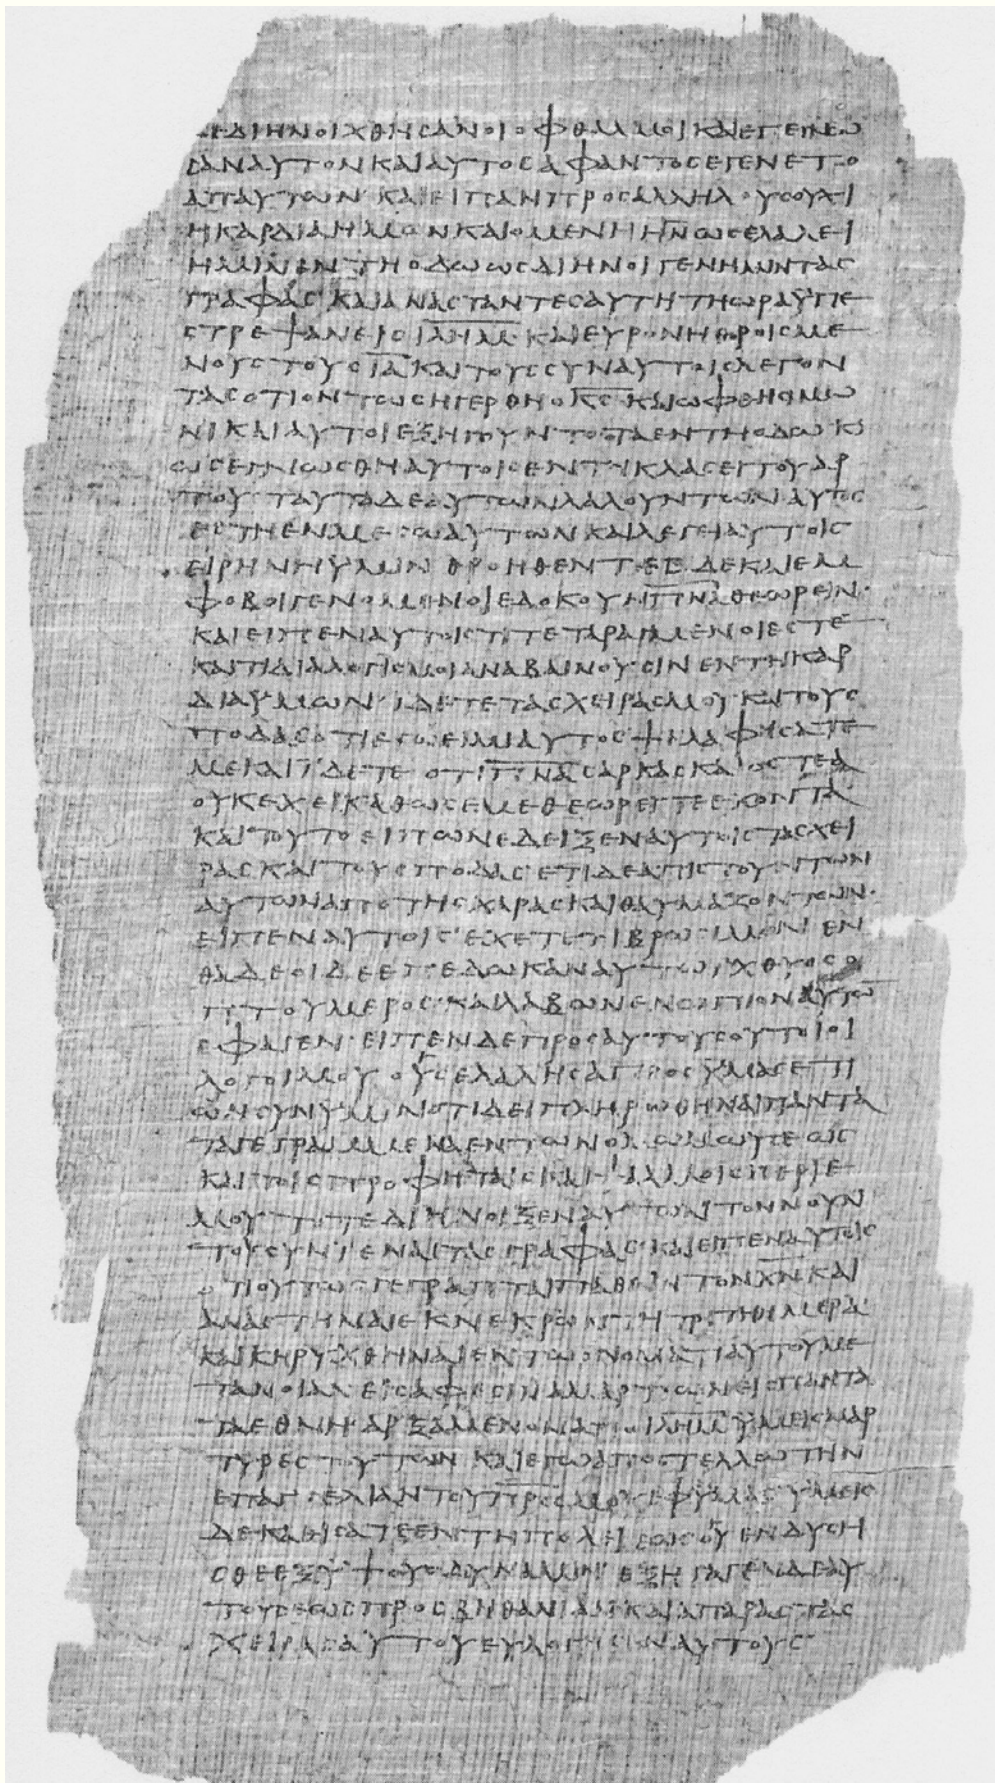 ΔΕΔΙΗΝΟΙΧΘΗϹΑΝΟΙΟΦΘΑΛΜΟΙΚΑΙΕΠΕΓΝΩ
ϹΑΝΑΥΤΟΝΚΑΙΑΥΤΟϹΑΦΑΝΤΟϹΕΓΕΝΕΤΟ
ΑΠΑΥΤΩΝ·ΚΑΙΕΙΠΑΝΠΡΟϹΑΛΛΗΛΟΥϹΟΥΧΙ
ΗΚΑΡΔΙΑΗΜΩΝΚΑΙΟΜΕΝΗΗΝΩϹΕΛΑΛΕΙ
ΗΜΙΝΕΝΤΗΟΔΩΩϹΔΙΗΝΟΙΓΕΝΗΜΙΝΤΑϹ
ΓΡΑΦΑϹ·ΚΑΙΑΝΑϹΤΑΝΤΕϹΑΥΤΗΤΗΩΡΑΫΠΕ
ϹΤΡΕΨΑΝΕΙϹΙΛΗΜ·ΚΑΙΕΥΡΟΝΗΘΡΟΙϹΜΕ
ΝΟΥϹΤΟΥϹΙΑΚΑΙΤΟΥϹϹΥΝΑΥΤΟΙϹΛΕΓΟΝ
ΤΑϹΟΤΙΟΝΤΩϹΗΓΕΡΘΗΟΚϹ·ΚΑΙΩΦΘΗϹΙΜΩ
ΝΙΚΑΙΑΥΤΟΙΕΞΗΓΟΥΝΤΟΤΑΕΝΤΗΟΔΩΚΑΙ
ΩϹΕΓΝΩϹΘΗΑΥΤΟΙϹΕΝΤΗΚΛΑϹΕΙΤΟΥΑΡ
ΤΟΥ·ΤΑΥΤΑΔΕΑΥΤΩΝΛΑΛΟΥΝΤΩΝΑΥΤΟϹ
ΕϹΤΗΕΝΜΕϹΩΑΥΤΩΝΚΑΙΛΕΓΕΙΑΥΤΟΙϹ
ΕΙΡΗΝΗΫΜΙΝ·ΘΡΟΗΘΕΝΤΕϹΔΕΚΑΙΕΜ
ΦΟΒΟΙΓΕΝΟΜΕΝΟΙΕΔΟΚΟΥΝΠΝΑΘΕΩΡΕΙΝ·
ΚΑΙΕΙΠΕΝΑΥΤΟΙϹΤΙΤΕΤΑΡΑΓΜΕΝΟΙΕϹΤΕ
ΚΑΙΤΙΔΙΑΛΟΓΙϹΜΟΙΑΝΑΒΑΙΝΟΥϹΙΝΕΝΤΗΚΑΡ
ΔΙΑΫΜΩΝ·ΙΔΕΤΕΤΑϹΧΕΙΡΑϹΜΟΥΚΑΙΤΟΥϹ
ΠΟΔΑϹΟΤΙΕΓΩΕΙΜΙΑΥΤΟϹ·ΨΗΛΑΦΗϹΑΤΕ
ΜΕΚΑΙΪΔΕΤΕΟΤΙΠΝΑϹΑΡΚΑϹΚΑΙΟϹΤΕΑ
ΟΥΚΕΧΕΙΚΑΘΩϹΕΜΕΘΕΩΡΕΙΤΕΕΧΟΝΤΑ·
ΚΑΙΤΟΥΤΟΕΙΠΩΝΕΔΕΙΞΕΝΑΥΤΟΙϹΤΑϹΧΕΙ
ΡΑϹΚΑΙΤΟΥϹΠΟΔΑϹ·ΕΤΙΔΕΑΠΙϹΤΟΥΝΤΩΝ
ΑΥΤΩΝΑΠΟΤΗϹΧΑΡΑϹΚΑΙΘΑΥΜΑΖΟΝΤΩΝ·
ΕΙΠΕΝΑΥΤΟΙϹ·ΕΧΕΤΕΤΙΒΡΩϹΙΜΟΝΕΝ
ΘΑΔΕΟΙΔΕΕΠΕΔΩΚΑΝΑΥΤΩΙΧΘΥΟϹΟ
ΠΤΟΥΜΕΡΟϹ·ΚΑΙΛΑΒΩΝΕΝΩΠΙΟΝΑΥΤΩ
ΕΦΑΓΕΝ·ΕΙΠΕΝΔΕΠΡΟϹΑΥΤΟΥϹΟΥΤΟΙΟΙ
ΛΟΓΟΙΜΟΥΟΥϹΕΛΑΛΗϹΑΠΡΟϹΫΜΑϹΕΤΙ
ΩΝϹΥΝΫΜΙΝΟΤΙΔΕΙΠΛΗΡΩΘΗΝΑΙΠΑΝΤΑ
ΤΑΓΕΓΡΑΜΜΕΝΑΕΝΤΩΝΟΜΩΜΩΥϹΕΩϹ
ΚΑΙΤΟΙϹΠΡΟΦΗΤΑΙϹΚΑΙΨΑΛΜΟΙϹΠΕΡΙΕ
ΜΟΥ·ΤΟΤΕΔΙΗΝΟΙΞΕΝΑΥΤΩΝΤΟΝΝΟΥΝ
ΤΟΥϹΥΝΙΕΝΑΙΤΑϹΓΡΑΦΑϹ·ΚΑΙΕΙΠΕΝΑΥΤΟΙϹ
ΟΤΙΟΥΤΩϹΓΕΓΡΑΠΤΑΙΠΑΘΕΙΝΤΟΝΧΝΚΑΙ
ΑΝΑϹΤΗΝΑΙΕΚΝΕΚΡΩΝΤΗΤΡΙΤΗΗΜΕΡΑ·
ΚΑΙΚΗΡΥΧΘΗΝΑΙΕΝΤΩΟΝΟΜΑΤΙΑΥΤΟΥΜΕ
ΤΑΝΟΙΑΝΕΙϹΑΦΕϹΙΝΑΜΑΡΤΙΩΝΕΙϹΠΑΝΤΑ
ΤΑΕΘΝΗ·ΑΡΞΑΜΕΝΟΝΑΠΟΙΛΗΜΫΜΕΙϹΜΑΡ
ΤΥΡΕϹΤΟΥΤΩΝΚΑΙΕΓΩΑΠΟϹΤΕΛΛΩΤΗΝ
ΕΠΑΓΓΕΛΙΑΝΤΟΥΠΡϹΜΟΥΕΦΫΜΑϹ·ΫΜΕΙϹ
ΔΕΚΑΘΙϹΑΤΕΕΝΤΗΠΟΛΕΙΕΩϹΟΥΕΝΔΥϹΗ
ϹΘΕΕΞΫΨΟΥϹΔΥΝΑΜΙΝ·ΕΞΗΓΑΓΕΝΔΕΑΥ
ΤΟΥϹΕΩϹΠΡΟϹΒΗΘΑΝΙΑΝΚΑΙΕΠΑΡΑϹΤΑϹ
ΧΕΙΡΑϹΑΥΤΟΥΕΥΛΟΓΗϹΕΝΑΥΤΟΥϹ